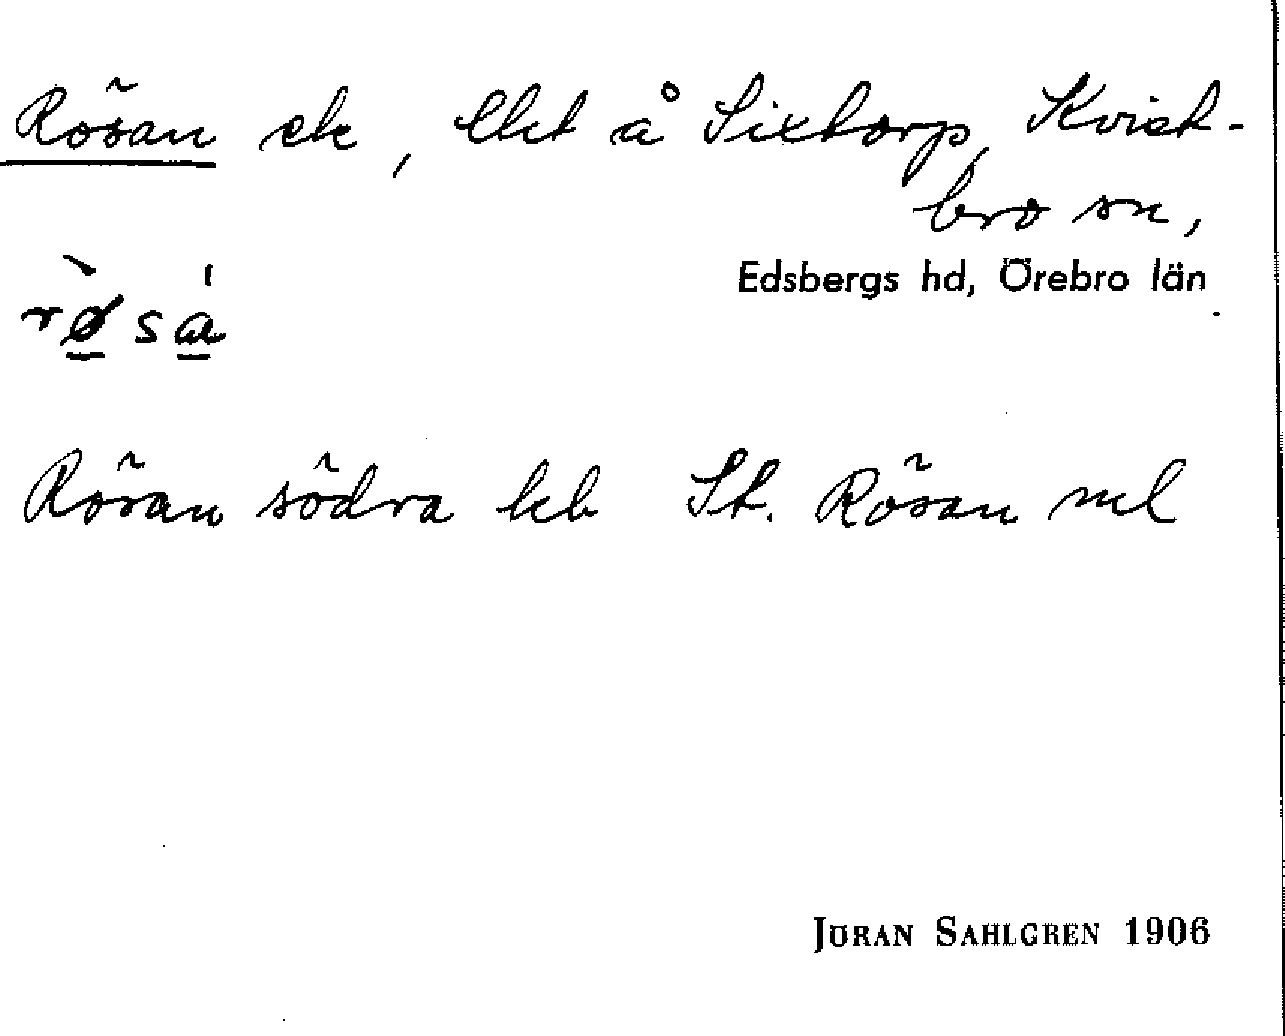 Rösan ek, lht å Sixtorp, Kvist-
bro sn,
Edsbergs hd, Örebro län
Rösan södra hb St. Rösan ml
JÖRAN SAHLGREN 1906